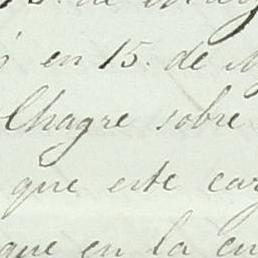 de
en 15. de
Chagre sobre
que este car
que en la en